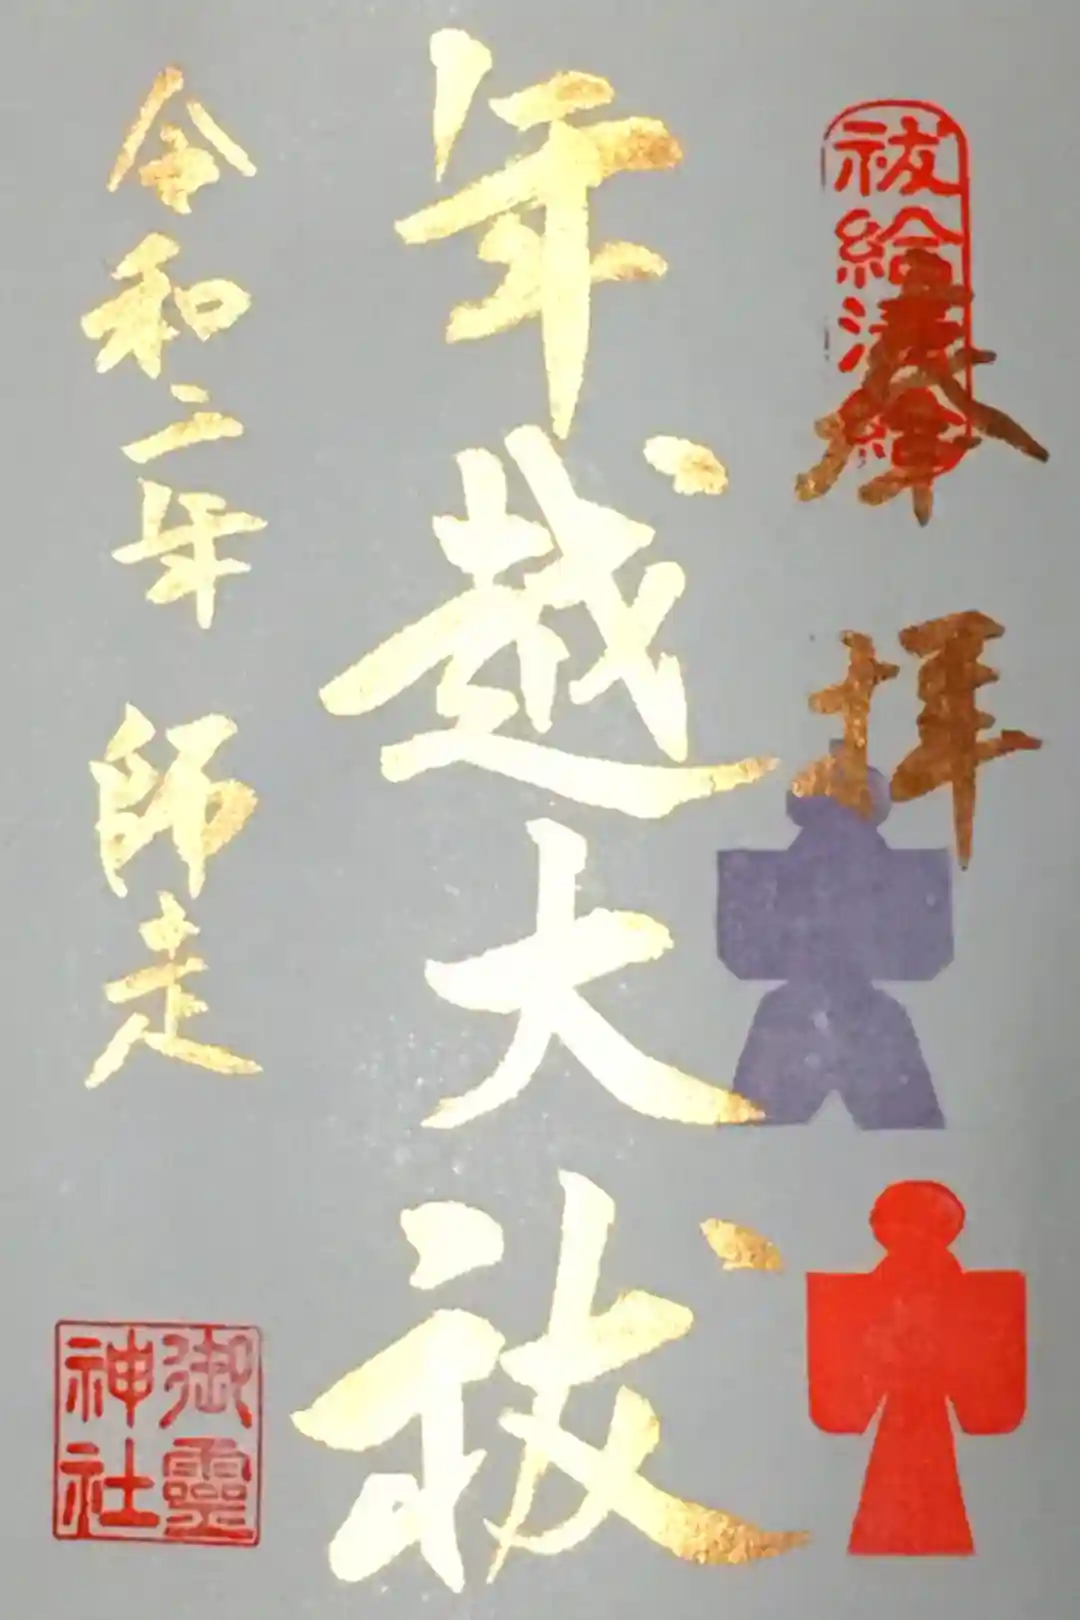 祓給清給
奉拝
年越大祓
令和二年 師走
御靈神社